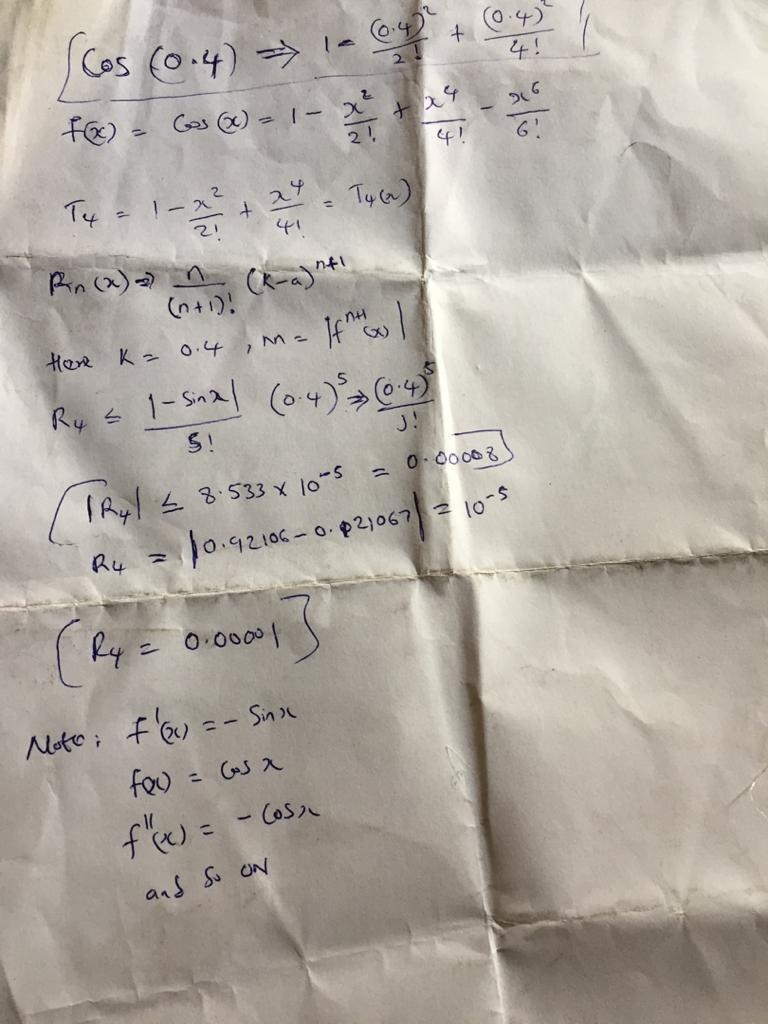 Cos (0.4) ⇒ 1 - (0.4)²/2! + (0.4)²/4!
f(x) = Cos(x) = 1 - x²/2! + x⁴/4! - x⁶/6!
T₄ = 1 - x²/2! + x⁴/4! = T₄(x)
Rn(x) ⇒ n/(n+1)! (K-a)ⁿ⁺¹
Here K = 0.4, m = |fⁿ⁺¹(x)|
R₄ ≤ |-Sinx|/5! (0.4)⁵ ⇒ (0.4)⁵/5!
|R₄| ≤ 8.533 x 10⁻⁵ = 0.00008
R₄ = |0.92106 - 0.921067| = 10⁻⁵
[R₄ = 0.00001]
Note: f'(x) = - Sinx
f(x) = Cos x
f''(x) = - Cosx
and so ON